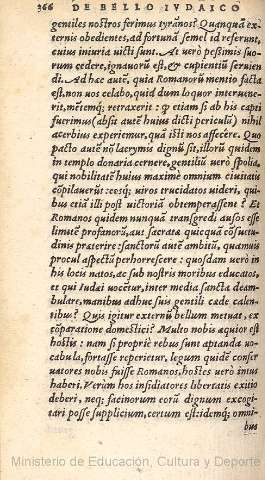 366 DE BELLO IVDAICO
gentiles nostros ferimus tyrãnos? Quanquã ex
ternis obedientes, ad fortunã semel id referunt,
cuius iniuria victi sunt. At verò pessimis suo-
rum cedere, ignauorũ est, & cupientiũ seruien
di. Ad hac autẽ, quia Romanorũ mentio facta
est, non vos celabo, quid dum loquor interuene-
rit, mẽtemq; retraxerit: ꝙ etiam si ab his capti
fuerimus (absit autẽ huius dicti periculũ) nihil
acerbius experiemur, quã isti nos affecêre. Quo
pacto autẽ nõ lacrymis dignũ sit, illorũ quidem
in templo donaria cernere, gentiliũ verò spolia,
qui nobilitatẽ huius maximè omnium ciuitatis
cõpilauerũt: eosq; viros trucidatos videri, qui-
bus etiã illi post victoriã obtemperassent? Et
Romanos quidem nunquã transgredi ausos esse
limitẽ profanorũ, aut sacratæ quicquã cõsuetu-
dinis præterire: sanctorũ autẽ ambitũ, quamuis
procul aspectũ perhorrescere: quosdam verò in
his locis natos, ac sub nostris moribus educatos,
et qui Iudæi vocẽtur, inter media sancta deam-
bulare, manibus adhuc suis gentili cæde calen-
tibus? Quis igitur externũ bellum metuat, ex
cõparatione domestici? Multo nobis æquior est
hostis: nam si propriè rebus sunt aptanda vo-
cabula, fortasse reperietur, legum quidẽ conser
uatores nobis fuisse Romanos, hostes verò intus
haberi. Verùm hos insidiatores libertatis exitio
deberi, neq; facinorum eorũ dignum excogi-
tari posse supplicium, certum est: idemq; omni-
bus
Ministerio de Educación, Cultura y Deporte